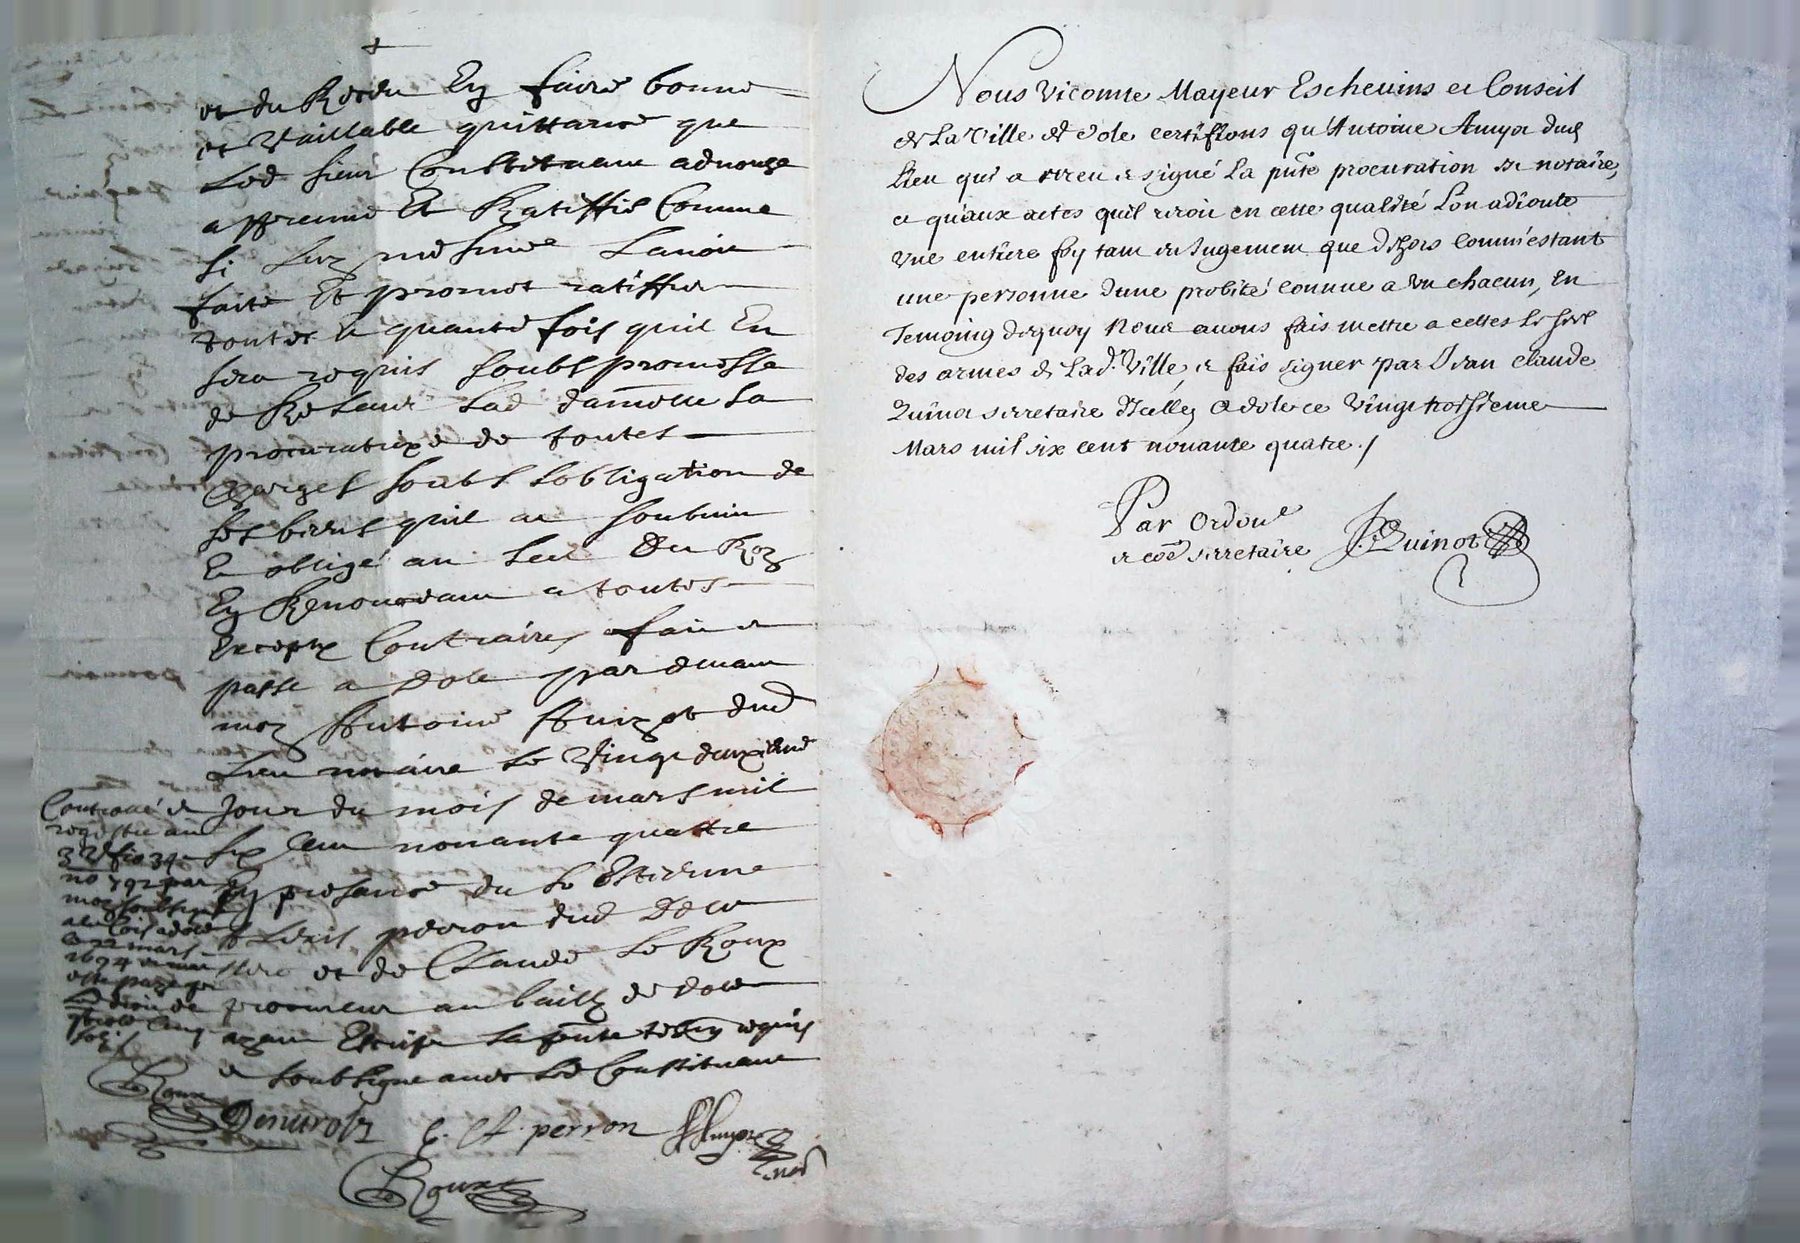 et du Receu En faire bonne
et Vaillable quittance que
Led sieur Constituant advoue
appreuve Et Ratiffie Comme
si Luy mesme Lavoit
faite Et promet ratiffier
toutes et quante fois quil En
sera requis soubs promesse
de Relever Lad damoiselle La
procuratrixe de toutes
Charges soubs Lobligation de
ses biens quil a soubmis
Et obligé au scel Du Roy
En Renonceant a toutes
Exceptx Contraires fait et
passé a Dole pardevant
moy Antoine Amyot dud
Lieu notaire Le Vingt deuxieme
Jour du mois de mars mil
six Cent nonante quattre
En presence du Sr Estienne
Alexis perron dud Dole
et de Claude Le Roux
procureur au baill de Dole
ayant Escript La pnte tesmoins requis
et soubsigne avec Led Constituant
Controllé et
registré au
3 V fio 34
no 392 par
moy soubsigné
a Dole
ce 22 mars
1694
Le Roux
E. A. perron
Amyot
not
Le Roux
Nous Viconte Mayeur Eschevins et Conseil
de La Ville de Dole certifions qu'Antoine Amyot dud
Lieu qui a receu et signé La pnte procuration est notaire,
et qu'aux actes quil reçoit en cette qualité L'on adioute
vne entiere foy tant en Jugement que dehors comme estant
une personne d'une probité connue a vn chacun, En
Temoing dequoy Nous avons fais mettre a cettes Le seel
des armes de Lad. Ville, et fais signer par Jean Claude
Quinot secretaire d'Icelle, a dole ce Vingt troisieme
Mars mil six cent nonante quatre ./
Par Ordonce
et coe secretaire J. C. Quinot